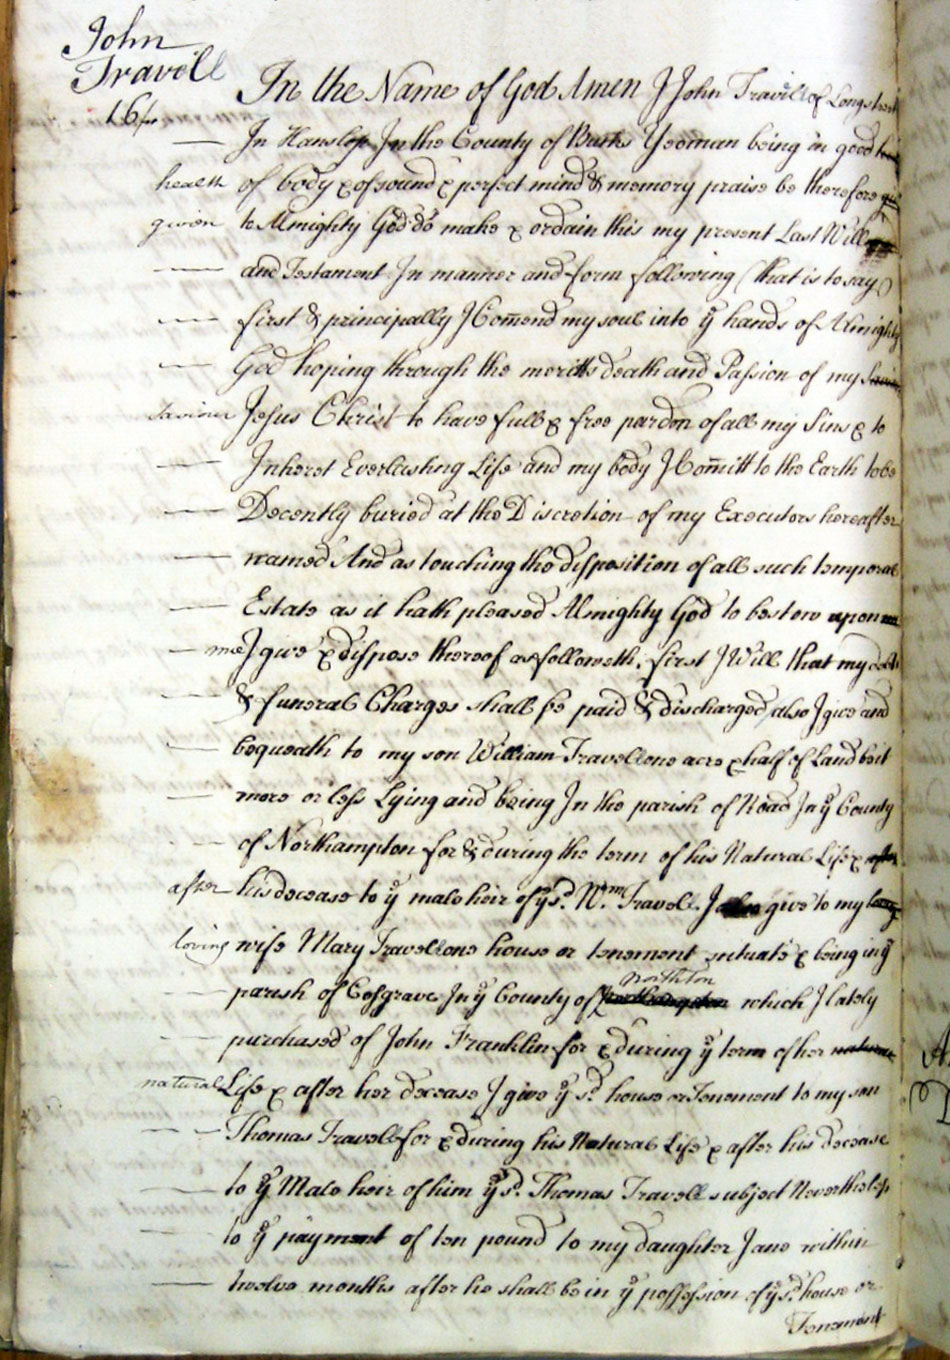 John
Travell
16
In the Name of God Amen I John Travell of Longstreet
In Hanslop In the County of Bucks Yeoman being in good
health of body & of sound & perfect mind & memory praise be therefore
given to Almighty God do make & ordain this my present Last Will
and Testament In manner and form following (that is to say)
first & principally I Com̄end my soul into ye hands of Almighty
God hoping through the meritts death and Passion of my
Saviour Jesus Christ to have full & free pardon of all my Sins & to
Inheret Everlasting Life and my body I Com̄itt to the Earth to be
Decently buried at the Discretion of my Executors hereafter
named And as touching the disposition of all such temporal
Estate as it hath pleased Almighty God to bestow upon
me I give & dispose thereof as followeth: first I Will that my debts
& funeral Charges shall be paid & discharged, also I give and
bequeath to my son William Travell one acre & half of Land be it
more or less Lying and being In the parish of Road In ye County
of Northampton for & during the term of his Natural Life & after
after his decease to ye male heir of ye sd. Wm. Travell I also give to my
loving wife Mary Travell one house or tenement situate & being in ye
northton
parish of Cosgrave In ye County of Northampton which I lately
purchased of John Franklin for & during ye term of her natural
natural Life & after her decease I give ye sd. house or Tenement to my son
Thomas Travell for & during his Natural Life & after his decease
to ye Male heir of him ye sd. Thomas Travell subject Nevertheless
to ye payment of ten pound to my daughter Jane within
twelve months after he shall be in ye possession of ye sd. house or
Tenement